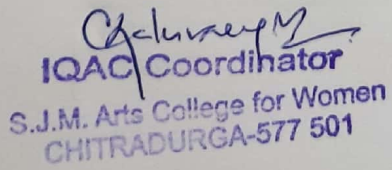 IQAC Coordinator
S.J.M. Arts College for Women
CHITRADURGA-577 501